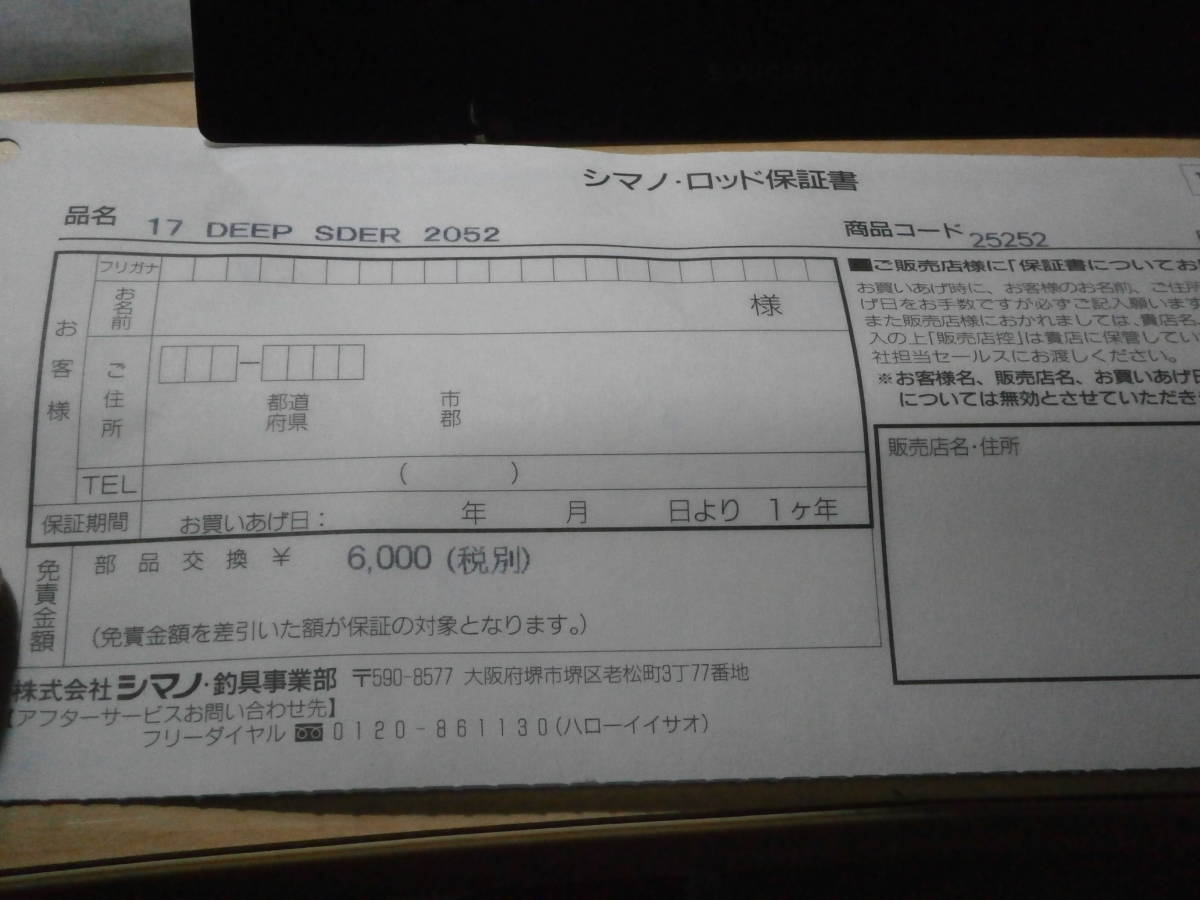 シマノ・ロッド保証書
品名 17 DEEP SDER 2052
商品コード 25252
フリガナ
お客様
お名前 様
ご住所
都道府県 市郡
TEL ( )
保証期間 お買いあげ日: 年 月 日より 1ヶ年
免責金額
部品交換 ¥ 6,000 (税別)
(免責金額を差引いた額が保証の対象となります。)
株式会社 シマノ・釣具事業部 〒590-8577 大阪府堺市堺区老松町3丁77番地
【アフターサービスお問い合わせ先】
フリーダイヤル 0120-861130(ハローイイサオ)
■ご販売店様に「保証書についてお
お買いあげ時に、お客様のお名前、ご住所
げ日をお手数ですが必ずご記入願います
また販売店様におかれましては、貴店名、
入の上「販売店控」は貴店に保管してい
社担当セールスにお渡しください。
※お客様名、販売店名、お買いあげ日
については無効とさせていただき
販売店名・住所